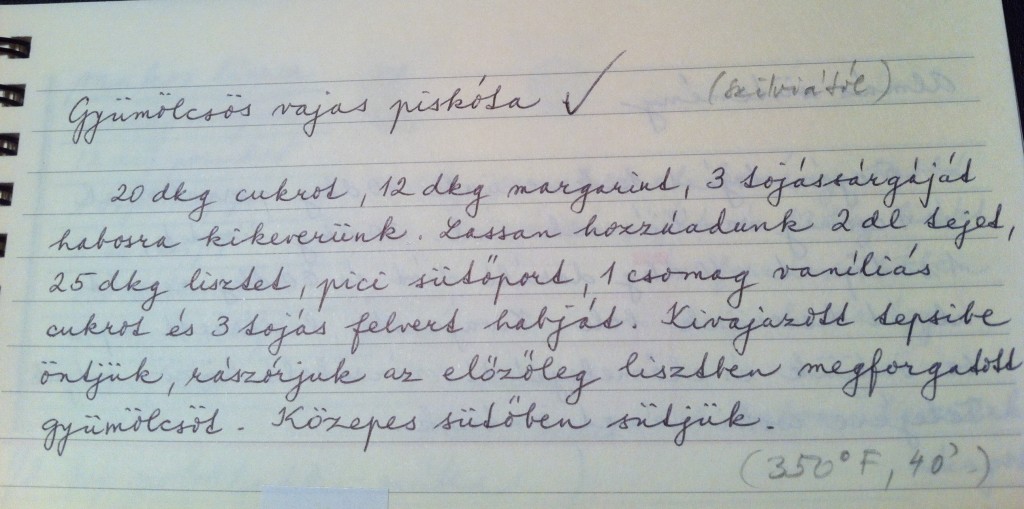 Gyümölcsös vajas piskóta ✓ (Szilviától)
20 dkg cukrot, 12 dkg margarint, 3 tojássárgáját
habosra kikeverünk. Lassan hozzáadunk 2 dl tejet,
25 dkg lisztet, pici sütőport, 1 csomag vaníliás
cukrot és 3 tojás felvert habját. Kivajazott tepsibe
öntjük, rászórjuk az előzőleg lisztben megforgatott
gyümölcsöt. Közepes sütőben sütjük.
(350°F, 40')